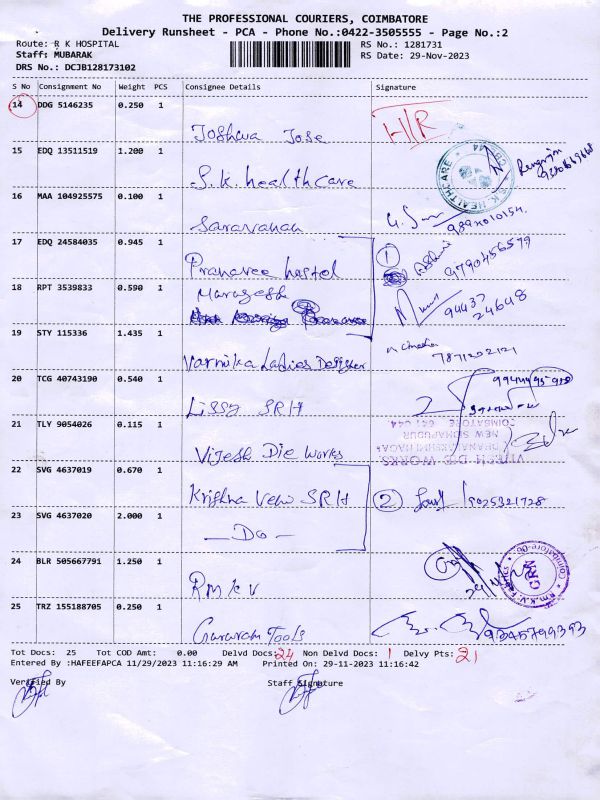 THE PROFESSIONAL COURIERS, COIMBATORE
Delivery Runsheet - PCA - Phone No.:0422-3505555 - Page No.:2
Route: R K HOSPITAL RS No.: 1281731
Staff: MUBARAK RS Date: 29-Nov-2023
DRS No.: DCJB128173102
S No Consignment No Weight PCS Consignee Details Signature
14 DDG 5146235 0.250 1
Joshwa Jose
15 EDQ 13511519 1.200 1
S.k. healthcare
16 MAA 104925575 0.100 1
Saravanan
17 EDQ 24584035 0.945 1 1
Pranavee hostel 9790456579
18 RPT 3539833 0.590 1
Marugesh 94437
24648
19 STY 115336 1.435 1
Varnika Ladies Designer 7871202121
20 TCG 40743190 0.540 1
Lissy SRH
21 TLY 9054026 0.115 1
Vijesh Die Works
VIJESH DIE WORKS
NEW SIDHAPUDUR
COIMBATORE 641 044
22 SVG 4637019 0.670 1
Krishna Veni SRH 2 9025321728
23 SVG 4637020 2.000 1
— Do —
24 BLR 505667791 1.250 1
Rmkv
25 TRZ 155188705 0.250 1
Gururam Tools 9345799393
Tot Docs: 25 Tot COD Amt: 0.00 Delvd Docs: 24 Non Delvd Docs: 1 Delvy Pts: 21
Entered By :HAFEEFAPCA 11/29/2023 11:16:29 AM Printed On: 29-11-2023 11:16:42
Verified By Staff Signature